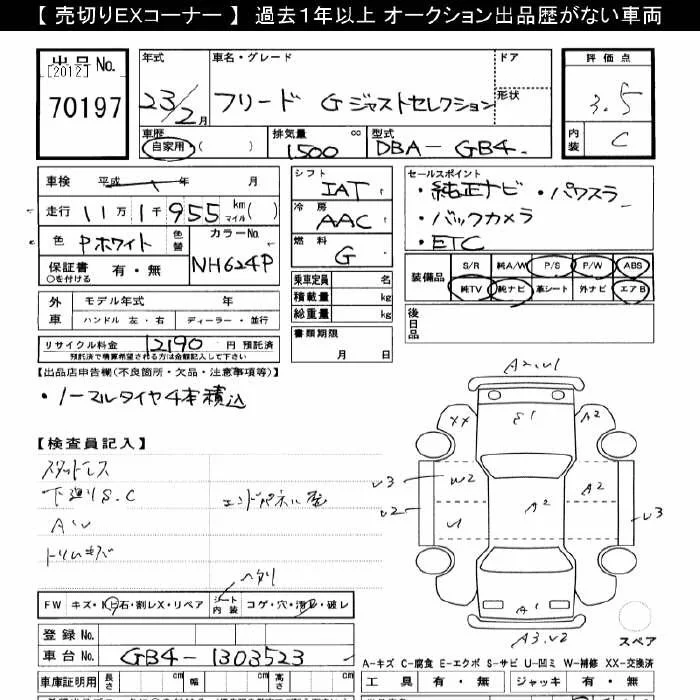 【 売切りEXコーナー 】 過去1年以上 オークション出品歴がない車両
出品 No. [2012] 70197
年式 23/2月
車名・グレード フリード G ジャストセレクション
ドア
形状
評価点 3.5
内装 C
車歴 自家用・( )
排気量 cc 1500
型式 DBA- GB4
車検 平成 年 月
走行 11万1千955 km マイル( )
色 Pホワイト 色替
カラーNo. NH624P
保証書 有・無
○を付ける
シフト IAT
冷房 AAC
燃料 G
セールスポイント
・純正ナビ ・パワスラ
・バックカメラ
・ETC
装備品 S/R 純A/W P/S P/W ABS
純TV 純ナビ 革シート 外ナビ エアB
外車 モデル年式 年
ハンドル 左・右 ディーラー・並行
乗車定員 名
積載量 kg
総重量 kg
後日品
リサイクル料金 12190 円 預託済
預託済で積算希望される方は金額記入して下さい
書類期限 月 日
【出品店申告欄(不良箇所・欠品・注意事項等)】
・ノーマルタイヤ4本積込
【検査員記入】
スタッドレス
下廻りS.C
エンドパネル歪
A・U
トリムキズ
A2.U1
XX E1 A2
U3 W2 A2 A2
U2 U U3
A1
A3.U2
スペア
ヘタリ
FW キズ・ヒ石・割レX・リペア シート内装 コゲ・穴・汚レ・破レ
登録 No.
車台 No. GB4-1303523
A-キズ C-腐食 E-エクボ S-サビ U-凹ミ W-補修 XX-交換済
車庫証明用 長さ cm 幅 cm 高さ cm
工具 有・無 ジャッキ 有・無